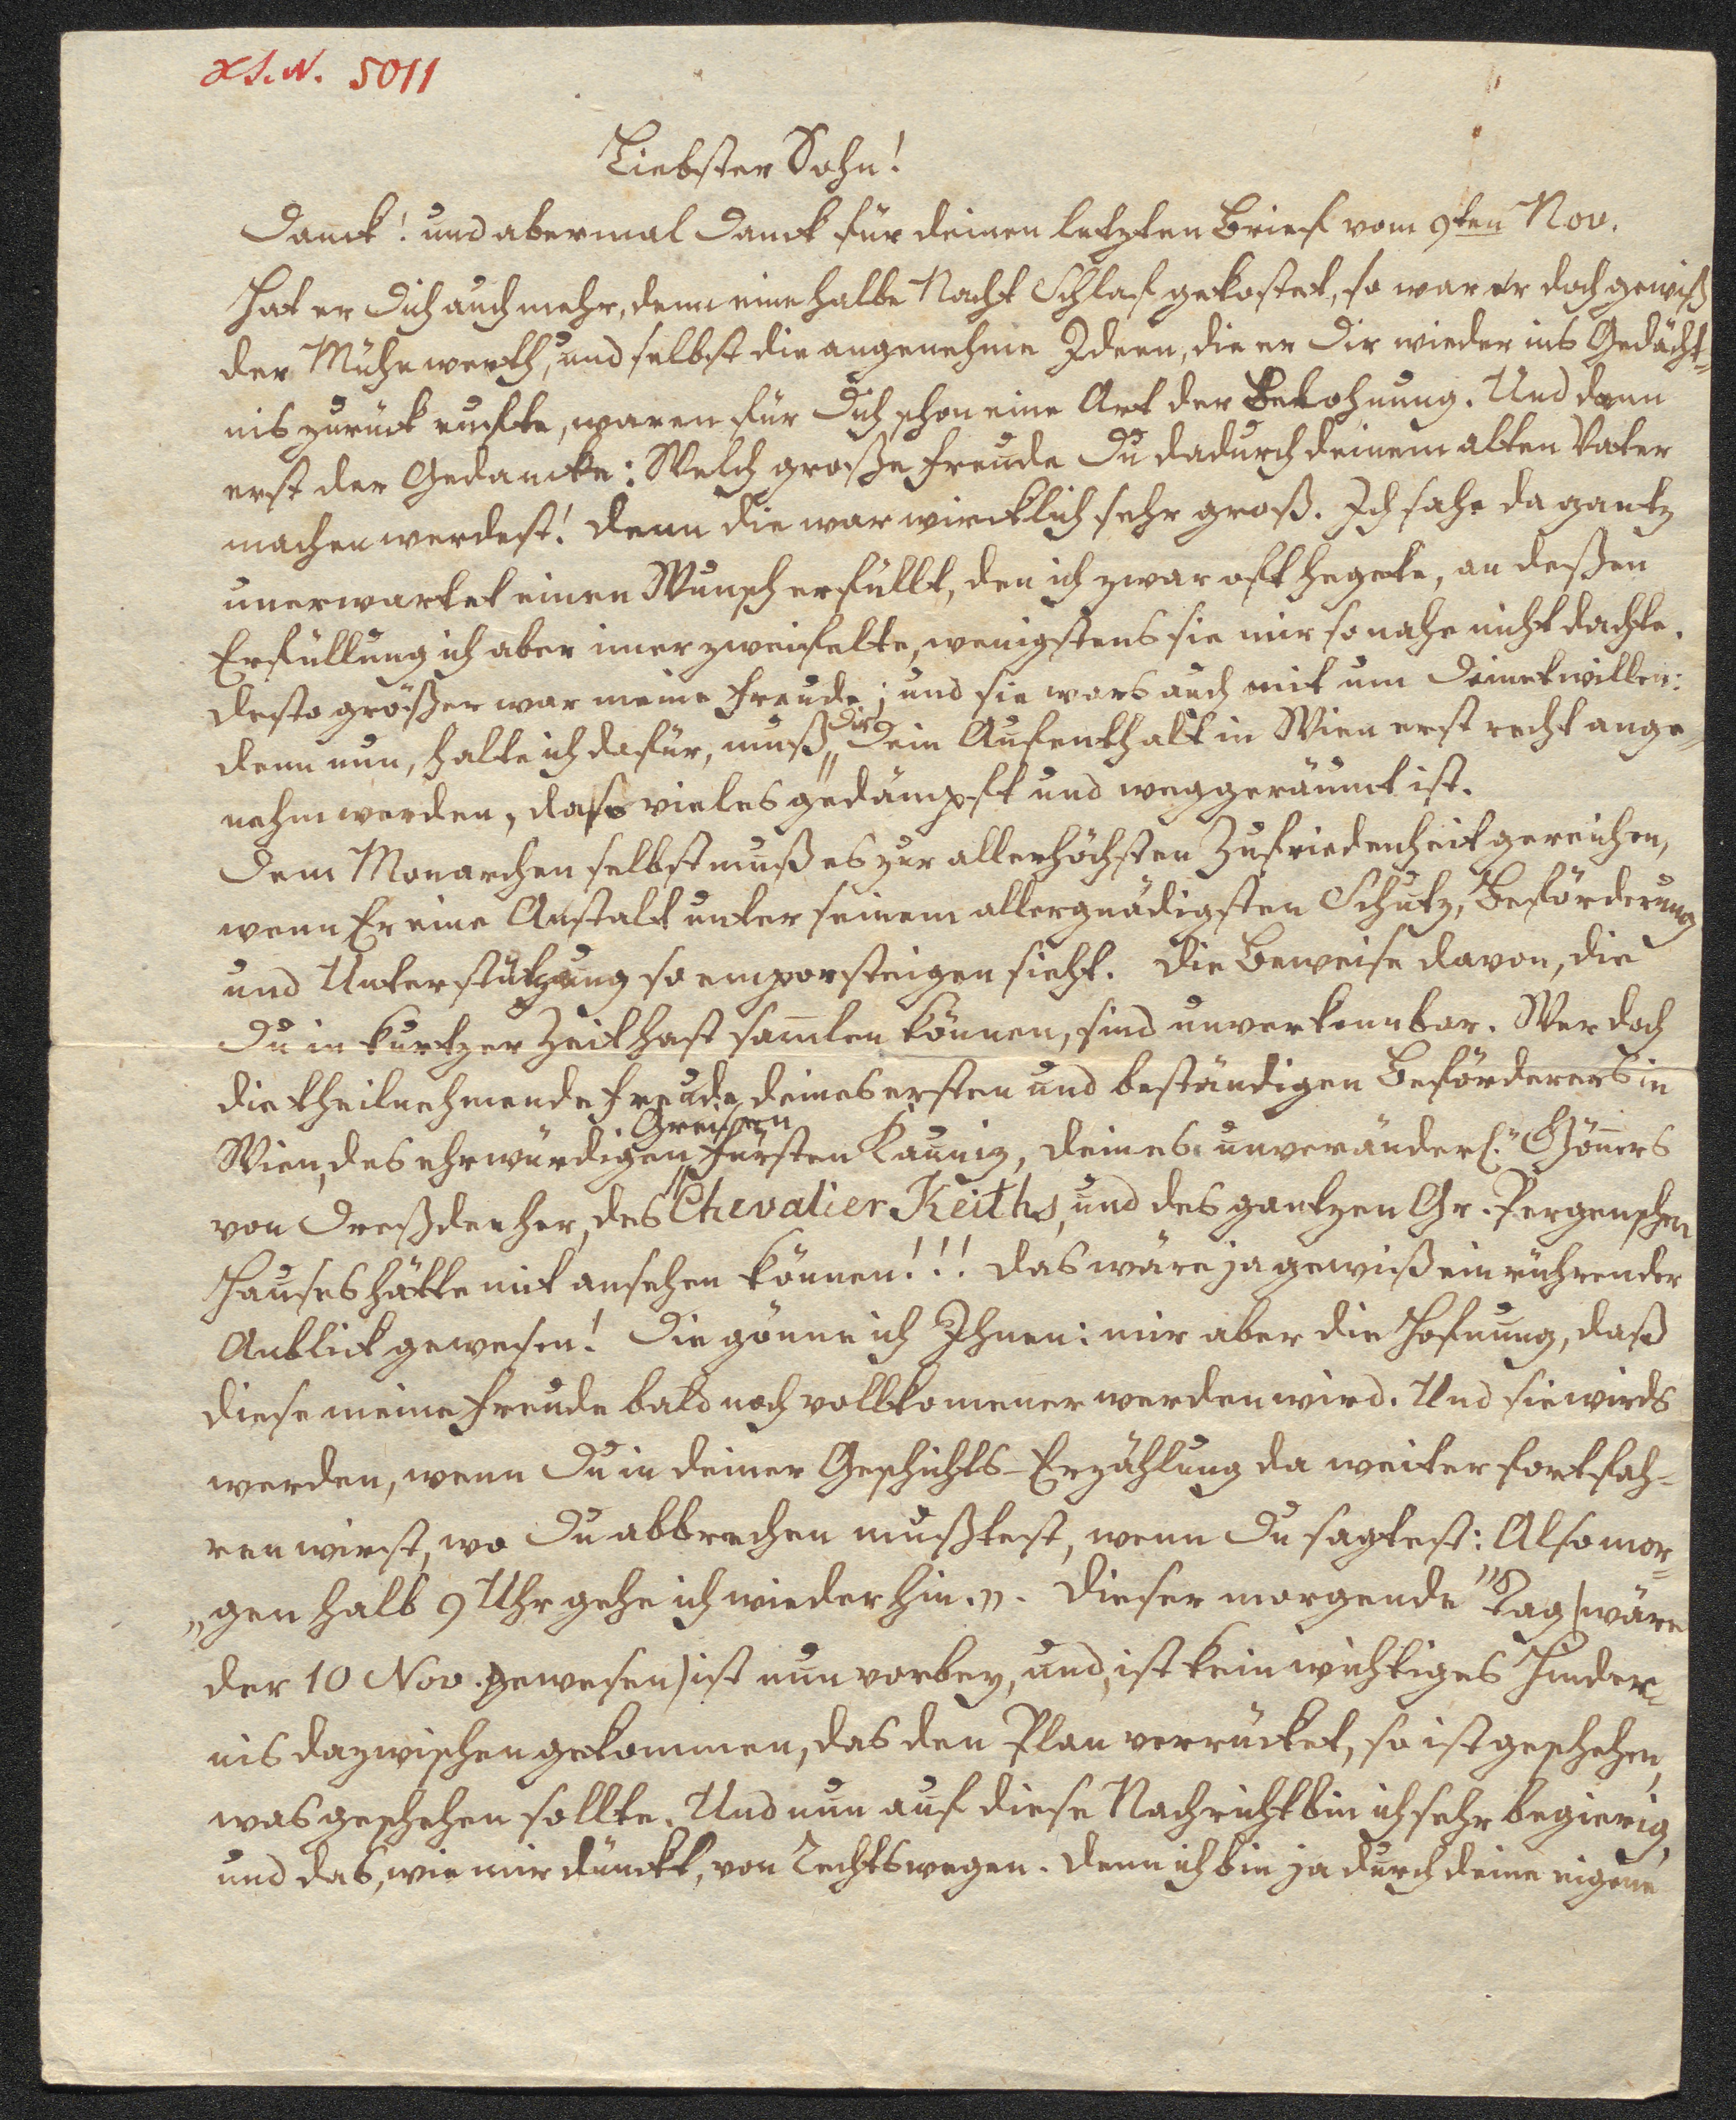 H.I.N. 5011
Liebster Sohn!
Danck! und abermal Danck für deinen letzten Brief vom 9ten Nov.
Hat er Dich auch mehr, denn eine halbe Nacht Schlaf gekostet, so war er doch gewiß
der Mühe werth, und selbst die angenehme Ideen, die er Dir wieder ins Gedächt-
nis zurück rufte, waren für Dich schon eine Art der Belohnung. Und dann
erst der Gedancke: Welch große Freude Du dadurch deinem alten Vater
machen werdest! Denn die war wircklich sehr groß. Ich sahe da gantz
unerwartet einen Wunsch erfüllt, den ich zwar oft hegete, an deßen
Erfüllung ich aber imer zweifelte, wenigstens sie mir so nahe nicht dachte.
Desto größer war meine Freude; und sie wars auch mit um Deinetwillen:
denn nun, halte ich dafür, muß Dir Dein Aufenthalt in Wien erst recht ange-
nehm werden, da so vieles gedämpft und weggeräumt ist.
Dem Monarchen selbst muß es zur allerhöchsten Zufriedenheit gereichen,
wenn Er eine Anstalt unter seinem allergnädigsten Schutz, Beförderung
und Unterstützung so emporsteigen sieht. Die Beweise davon, die
Du in kurtzer Zeit hast samlen können, sind unverkennbar. Wer doch
die theilnehmende Freude deines ersten und beständigen Beförderers in
Wien, des ehrwürdigen Greisen Fürsten Kauniz, deines unveränderl. Gönners
von Dreßden her, des Chevalier Keiths, und des gantzen Gr. Pergenschen
Hauses hätte mit ansehen können!!! Das wäre ja gewiß ein rührender
Anblick gewesen! Die gönne ich Ihnen: mir aber die Hofnung, daß
diese meine Freude bald noch vollkomener werden wird. Und sie wirds
werden, wenn Du in deiner Geschichts-Erzählung da weiter fortfah-
ren wirst, wo Du abbrechen mußtest, wenn Du sagtest: Also mor-
„gen halb 9 Uhr gehe ich wieder hin.„. Dieser morgende Tag (wäre
der 10 Nov. gewesen) ist nun vorbey, und, ist kein wichtiges Hinder-
nis dazwischen gekommen, das den Plan verrücket, so ist geschehen,
was geschehen sollte. Und nun auf diese Nachricht bin ich sehr begierig,
und das, wie mir dünckt, von Rechtswegen. Denn ich bin ja durch deine eigene